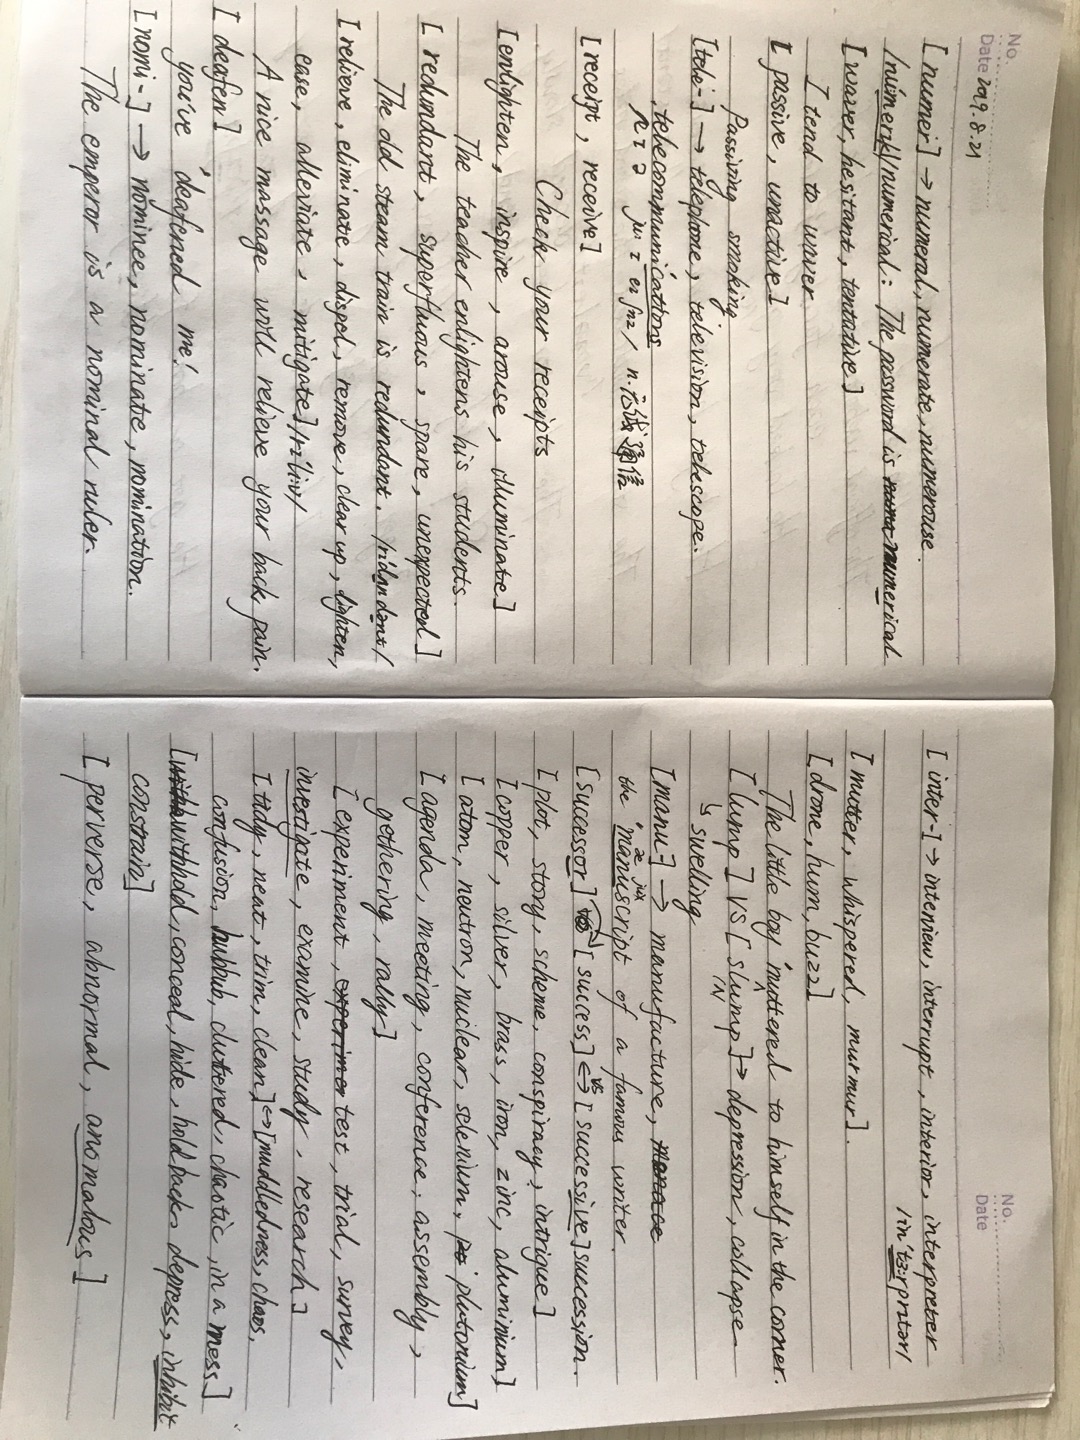 No.
Date 2019.8.21
[numer] → numeral, numerate, numerouse.
/numerik/numerical: The password is numerical
[waver, hesitant, tentative]
I tend to waver
[passive, unactive]
Passiving smoking
[tele-] → telephone, television, telescope.
telecommunications
n.
[receipt, receive]
Check your receipts
[enlighten, inspire, arouse, illuminate]
The teacher enlightens his students.
[redundant, superfluous, spare, unexpected]
The old steam train is redundant. /ridʌndənt/
[relieve, eliminate, dispel, remove, clear up, lighten,
ease, alleviate, mitigate] /ri'li:v/
A nice massage will relieve your back pain.
[deafen]
you've deafened me!
[nomi-] → nominee, nominate, nomination.
The emperor is a nominal ruler.
No.
Date
[inter-] → interview, interrupt, interior, interpreter
[mutter, whispered, murmur].
[drone, hum, buzz]
The little boy muttered to himself in the corner.
[lump] VS [slump] → depression, collapse
↳ swelling
[manu-] → manufacture,
the manuscript of a famous writer.
[successor] [success] ↔ vs [successive] succession.
[plot, story, scheme, conspiracy, intrigue]
[copper, silver, brass, iron, zinc, aluminium]
[atom, neutron, nuclear, selenium, plutonium]
[agenda, meeting, conference, assembly,
gethering, rally]
[experiment, test, trial, survey,
investigate, examine, study, research]
[tidy, neat, trim, clean] ↔ [muddledness, chaos,
confusion, hubbub, cluttered, chaotic, in a mess]
[withhold, conceal, hide, hold back, depress, inhibit
constrain]
[perverse, abnormal, anomalous]